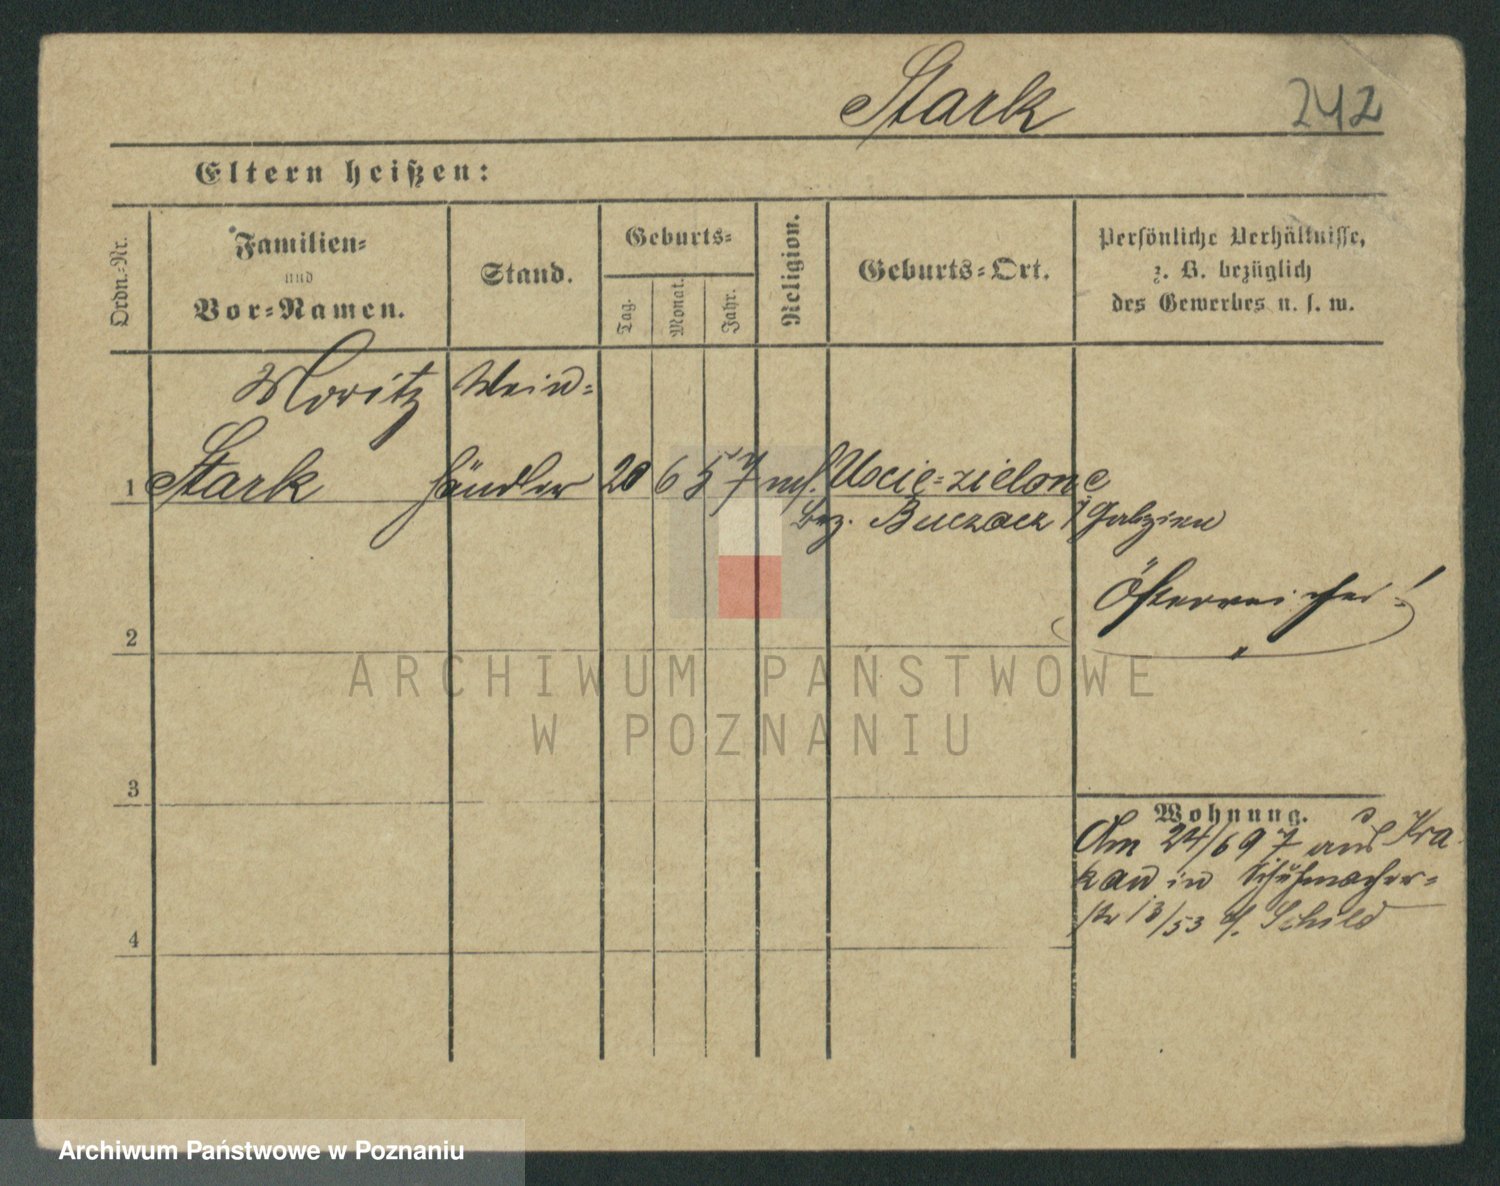 Stark
242
Eltern heißen:
Ordn.-Nr.
Familien-
und
Vor-Namen.
Stand.
Geburts-
Tag.
Monat.
Jahr.
Religion.
Geburts-Ort.
Persönliche Verhältnisse,
z. B. bezüglich
des Gewerbes u. s. w.
Moritz Wein-
1 Stark händler 20 6 57 mos. Uscie-zielone
Bez. Buczacz Galizien
Österreicher!
2
3
4
Wohnung.
Am 24/6 97 aus Kra-
kau in Schuhmacher-
str 13/53 b/. Schild
ARCHIWUM PAŃSTWOWE
W POZNANIU
Archiwum Państwowe w Poznaniu